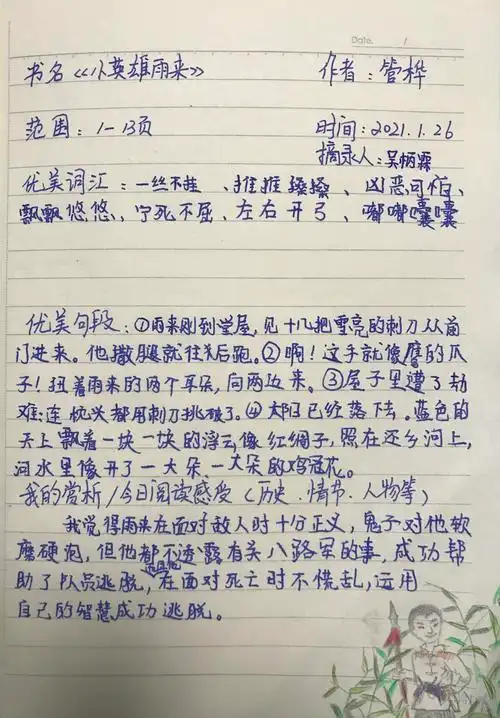 Date. /
书名《小英雄雨来》 作者:管桦
范围:1-13页 时间:2021.1.26
摘录人:吴炳霖
优美词汇:一丝不挂、推推搡搡、凶恶可怕、
飘飘悠悠、宁死不屈、左右开弓、嘟嘟囔囔
优美句段:①雨来刚到堂屋,见十几把雪亮的刺刀从前
门进来。他撒腿就往后跑。②啊!这手就像鹰的爪
子!扭着雨来的两个耳朵,向两边来。③屋子里遭了劫
难:连枕头都用刺刀挑破了。④太阳已经落下去。蓝色的
天上飘着一块一块的浮云像红绸子,照在还乡河上,
河水里像开了一大朵一大朵的鸡冠花。
我的赏析/今日阅读感受(历史、情节、人物等)
我觉得雨来在面对敌人时十分正义,鬼子对他软
磨硬泡,但他都不透露有关八路军的事,成功帮
助了队员逃脱,在面对死亡时不慌乱,运用
自己的智慧成功逃脱。